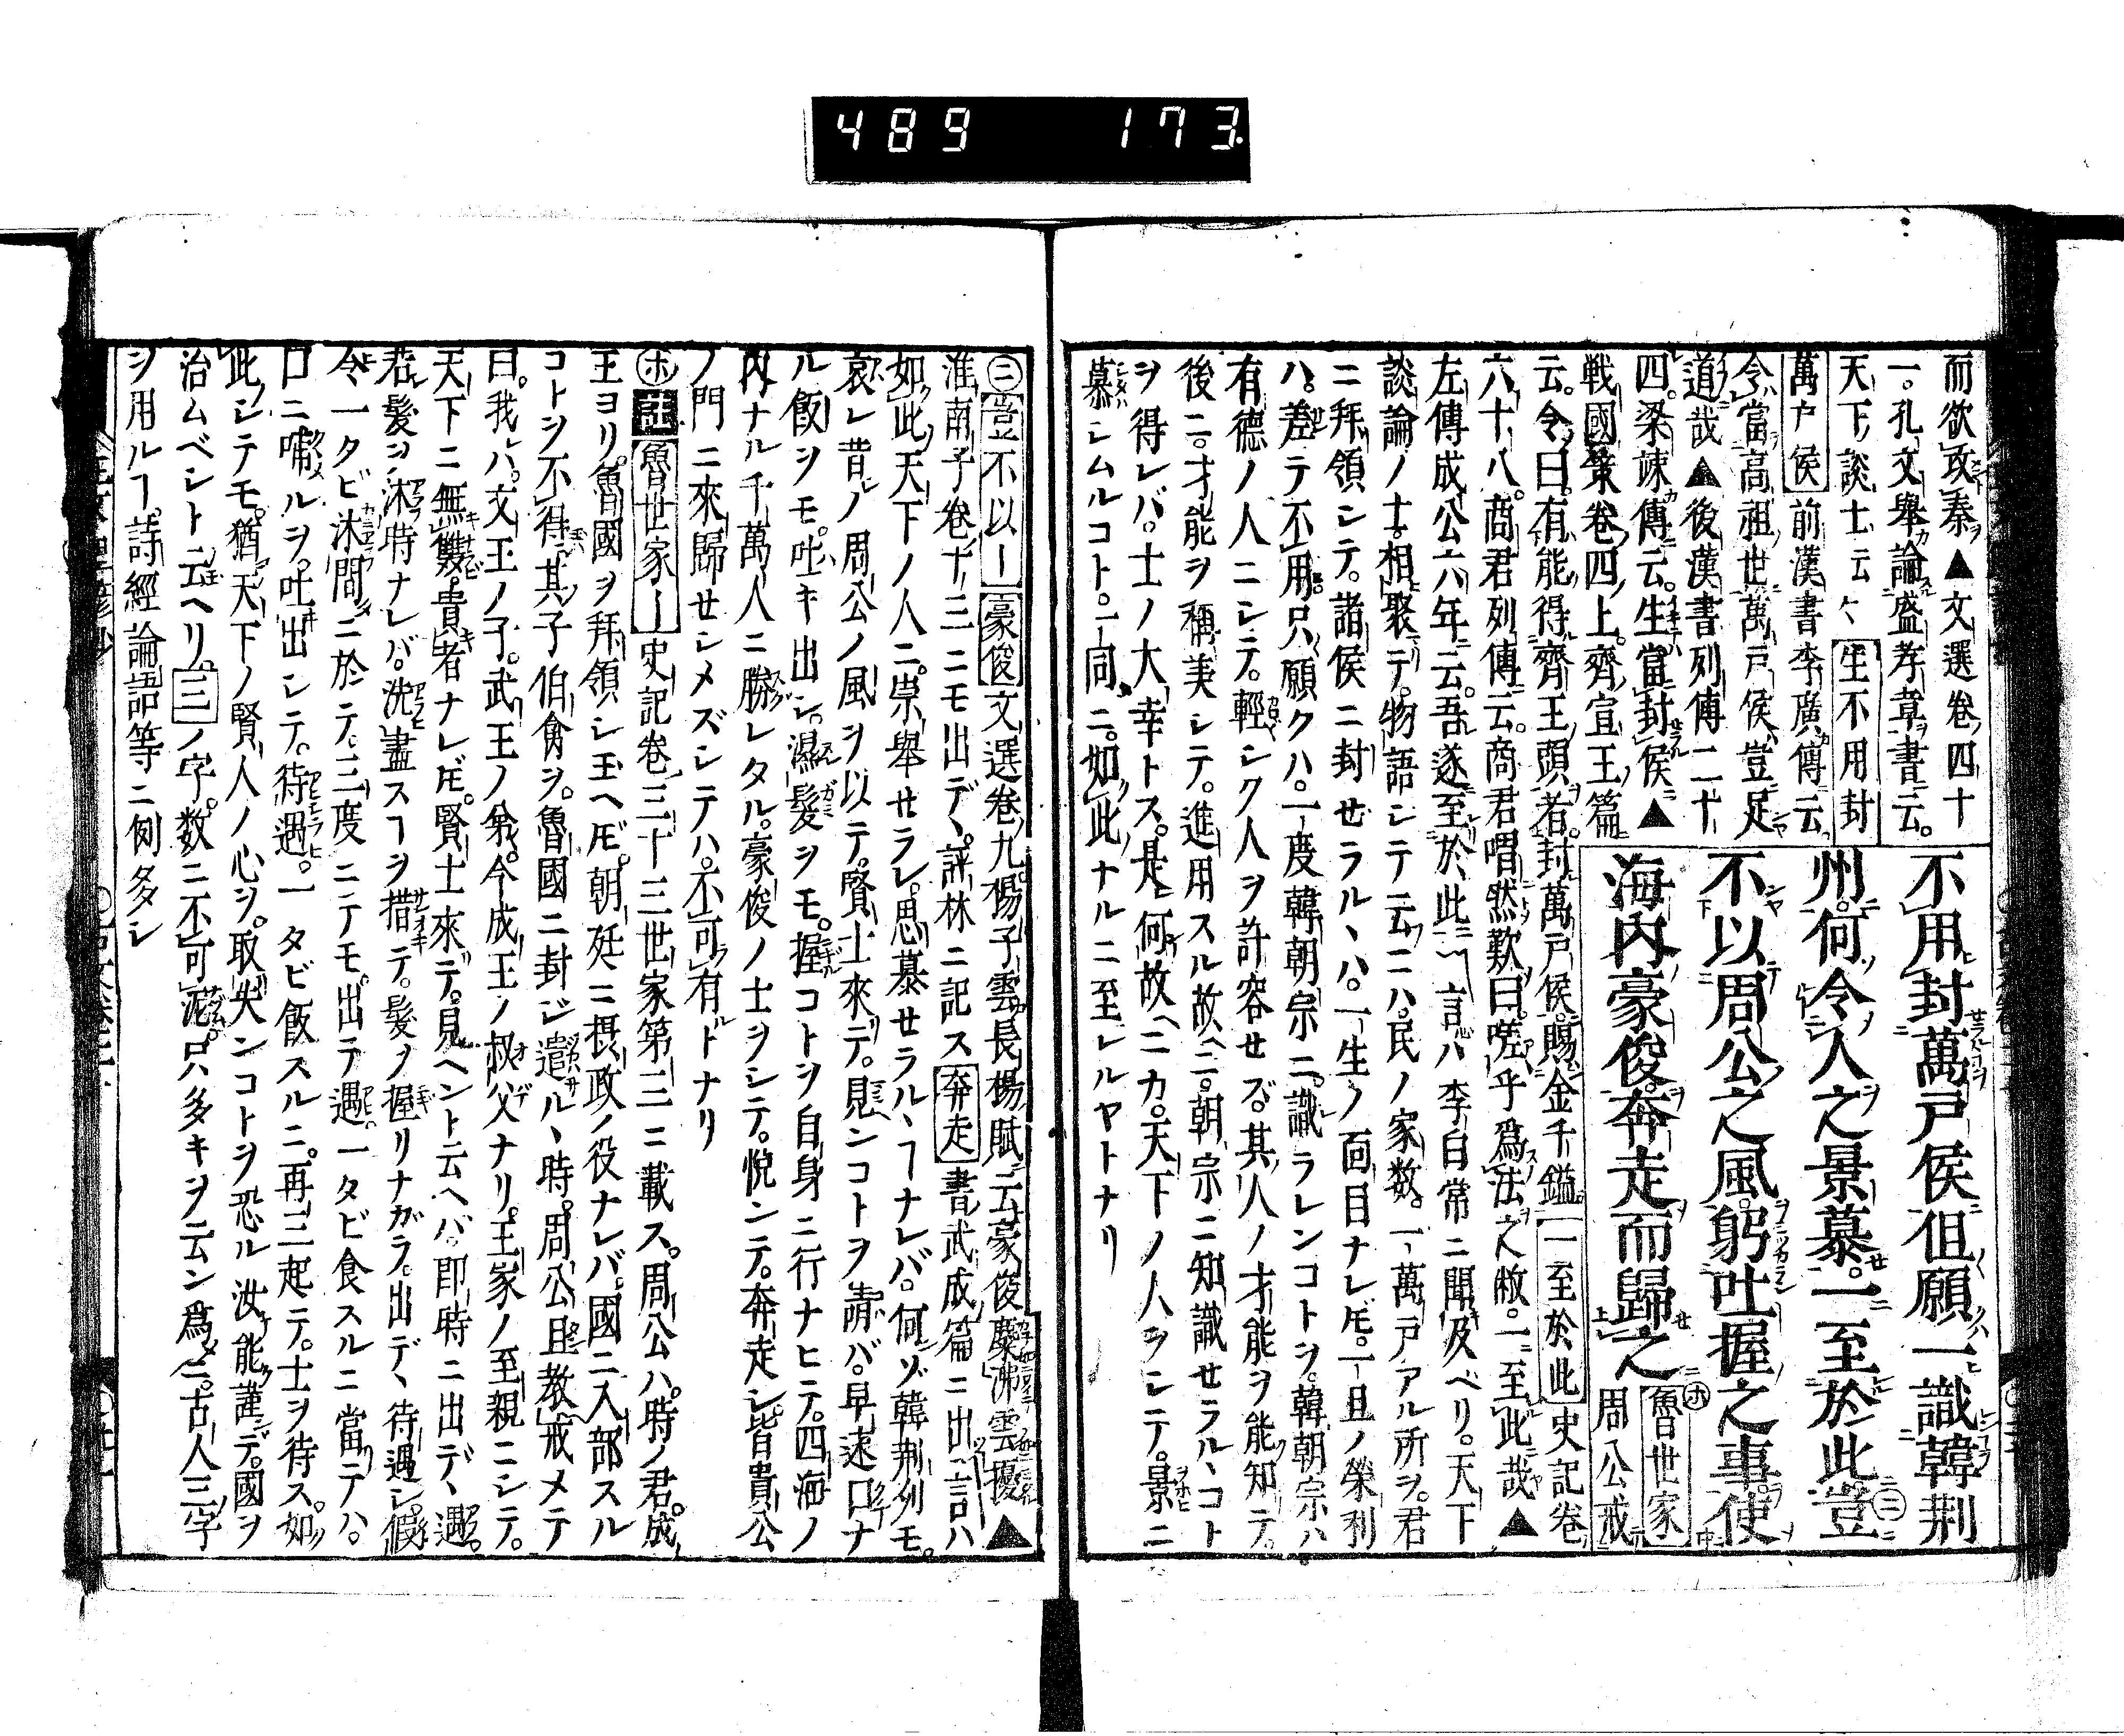 489 173
而欲攻秦▲文選卷四十
一。孔文舉論盛孝章書云。
天下談士云々 生不用封
萬戸侯 前漢書李廣傳云
令當高祖世萬戸侯豈足
道哉▲後漢書列傳二十
四。梁竦傳云。生當封侯▲
戰國策卷四上。齊宣王篇
云。令曰。有能得齊王頭者。封萬戸侯。賜金千鎰。 一至於此 史記卷
六十八。商君列傳云。商君喟然歎曰。嗟乎爲法之敝。一至此哉▲
左傳成公六年云。吾遂至於此 言ハ李白常ニ聞及ベリ。天下
談論ノ士。相聚テ。物語シテ云ニハ。民ノ家数。一萬戸アル所ヲ。君
ニ拜領シテ。諸侯ニ封ゼラルヽハ。一生ノ面目ナレ𪜈。一旦ノ榮利
ハ。差テ不用。只願クハ。一度韓朝宗ニ。識ラレンコトヲ。韓朝宗ハ。
有德ノ人ニシテ。輕シク人ヲ許容セズ。其人ノ才能ヲ能知テ。
後ニ。才能ヲ稱美シテ。進用スル故ニ。朝宗ニ知識セラルヽコト
ヲ得レバ。士ノ大幸トス。是何故ニカ。天下ノ人ヲシテ。景ニ
慕シムルコト。一同ニ。如此ナルニ至レルヤトナリ
不用封萬戸侯但願一識韓荆
州。何令人之景慕。一至於此。豈
不以周公之風。躬吐握之事。使
海内豪俊。奔走而歸之
ホ 魯世家
周公戒
ニ 豈不以ー 豪俊 文選卷九楊子雲長楊賦云豪俊麋沸雲擾▲
淮南子卷十三ニモ出デヽ。評林ニ記ス 奔走 書武成篇ニ出 言ハ
如此天下ノ人ニ。崇舉セラレ。思慕セラルヽヿナレバ。何ゾ韓荆州モ。
哀レ昔ノ周公ノ風ヲ以テ。賢士來テ。見ンコトヲ請バ。早速口ナ
ル飯ヲモ。吐キ出シ。濕髮ヲモ。握コトヲ自身ニ行ナヒテ。四海ノ
内ナル千萬人ニ勝レタル。豪俊ノ士ヲシテ。悅ンテ。奔走シ。皆貴公
ノ門ニ來歸セシメズシテハ。不可有トナリ
ホ 註 魯世家ー 史記卷三十三世家第三ニ載ス。周公ハ。時ノ君。成
王ヨリ。魯國ヲ拜領シ玉ヘ𪜈。朝廷ニ摂政ノ役ナレバ。國ニ入部スル
コトヲ不得。其子伯禽ヲ。魯國ニ封ジ遣ルヽ時。周公且教戒メテ
曰。我ハ。文王ノ子。武王ノ弟。今成王ノ叔父ナリ。王家ノ至親ニシテ。
天下ニ無雙。貴者ナレ𪜈。賢士來テ。見ヘント云ヘバ。即時ニ出デヽ遇。
若髮ヲ沐時ナレバ。洗盡スヿヲ措テ。髮ヲ握リナガラ。出デヽ待遇シ。假
令一タビ沐間ニ於テ。三度ニテモ。出テ遇。一タビ食スルニ當テハ。
口ニ哺ルヲ。吐出シテ。待遇。一タビ飯スルニ。再三起テ。士ヲ待ス。如
此シテモ。猶天下ノ賢人ノ心ヲ。取失ンコトヲ恐ル汝能謹デ。國ヲ
治ムベシト云ヘリ。三ノ字。数ニ不可泥。只多キヲ云ン爲ニ。古人三字
ヲ用ルヿ。詩經論語等ニ例多シ